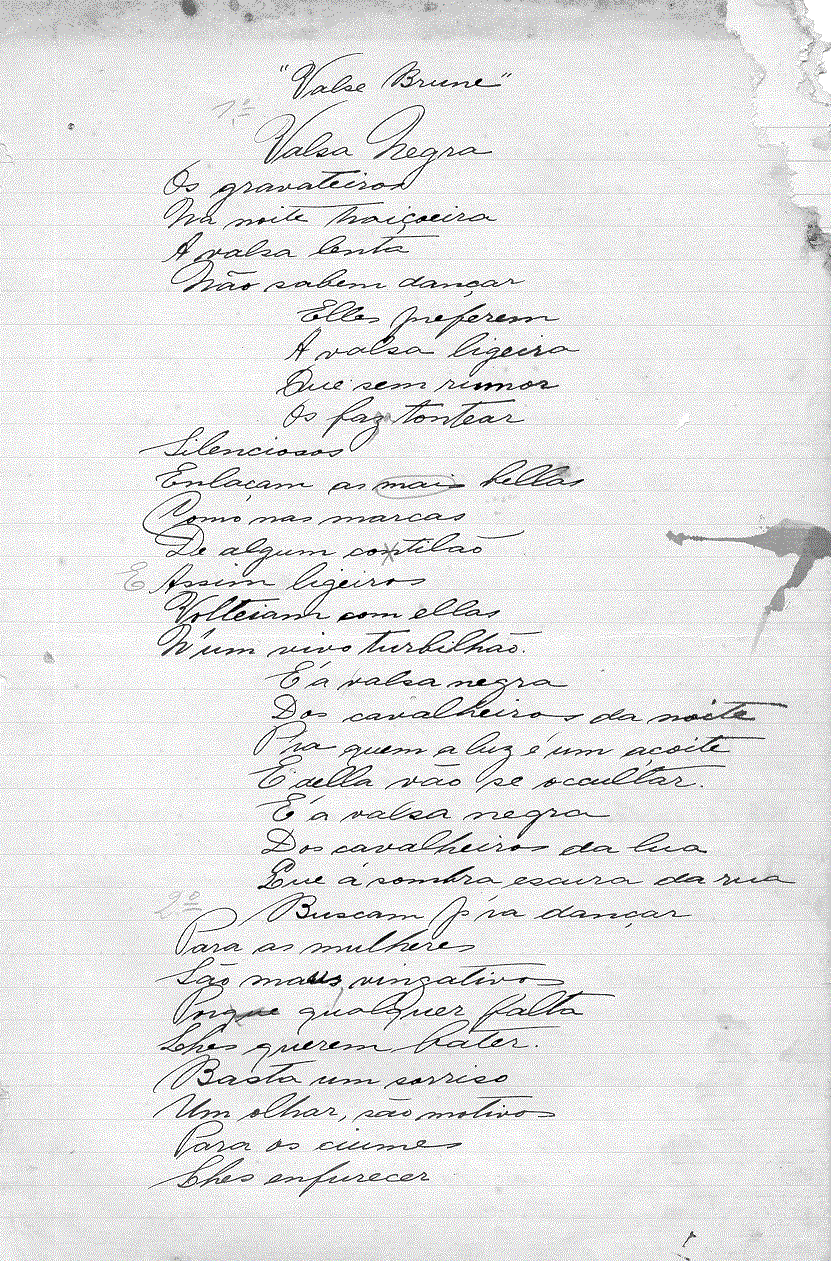 "Valse Brune"
1º
Valsa Negra
Os gravateiros
Na noite traiçoeira
A valsa lenta
Não sabem dançar
Elles preferem
A valsa ligeira
Que sem rumor
Os faz tontear
Silenciosos
Enlaçam as mais bellas
Como nas marcas
De algum cotilão
E Assim ligeiros
Volteiam com ellas
N'um vivo turbilhão.
É a valsa negra
Dos cavalheiros da noite
Pra quem a luz é um açoite
E della vão se occultar.
É a valsa negra
Dos cavalheiros da lua
Que á sombra escura da rua
Buscam p'ra dançar
2º
Para as mulheres
São maus vingativos
Porque qualquer falta
Lhes querem bater.
Basta um sorriso
Um olhar, são motivos
Para os ciumes
Lhes enfurecer